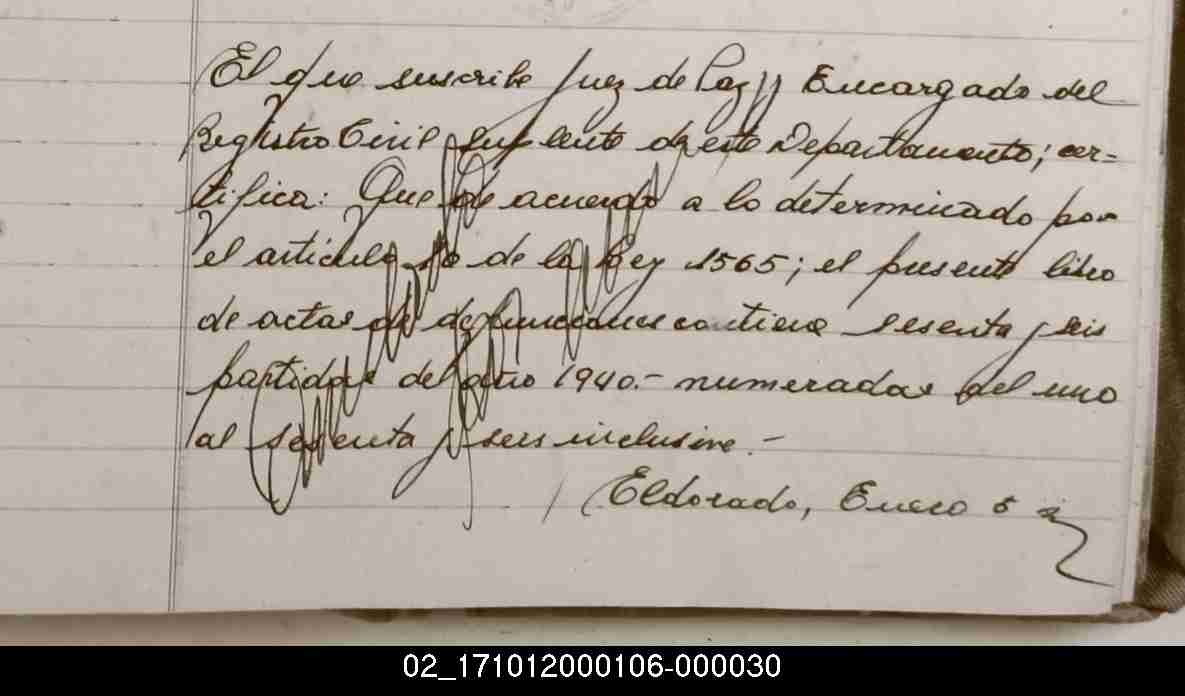 El que suscribe Juez de Paz y Encargado del
Registro Civil suplente de este Departamento; cer-
tifica: Que de acuerdo a lo determinado por
el artículo de la Ley 1565; el presente libro
de actas de defunciones contiene sesenta y seis
partidas del año 1940.- numeradas del uno
al sesenta y seis inclusive.-
Eldorado, Enero 5
02_171012000106-000030